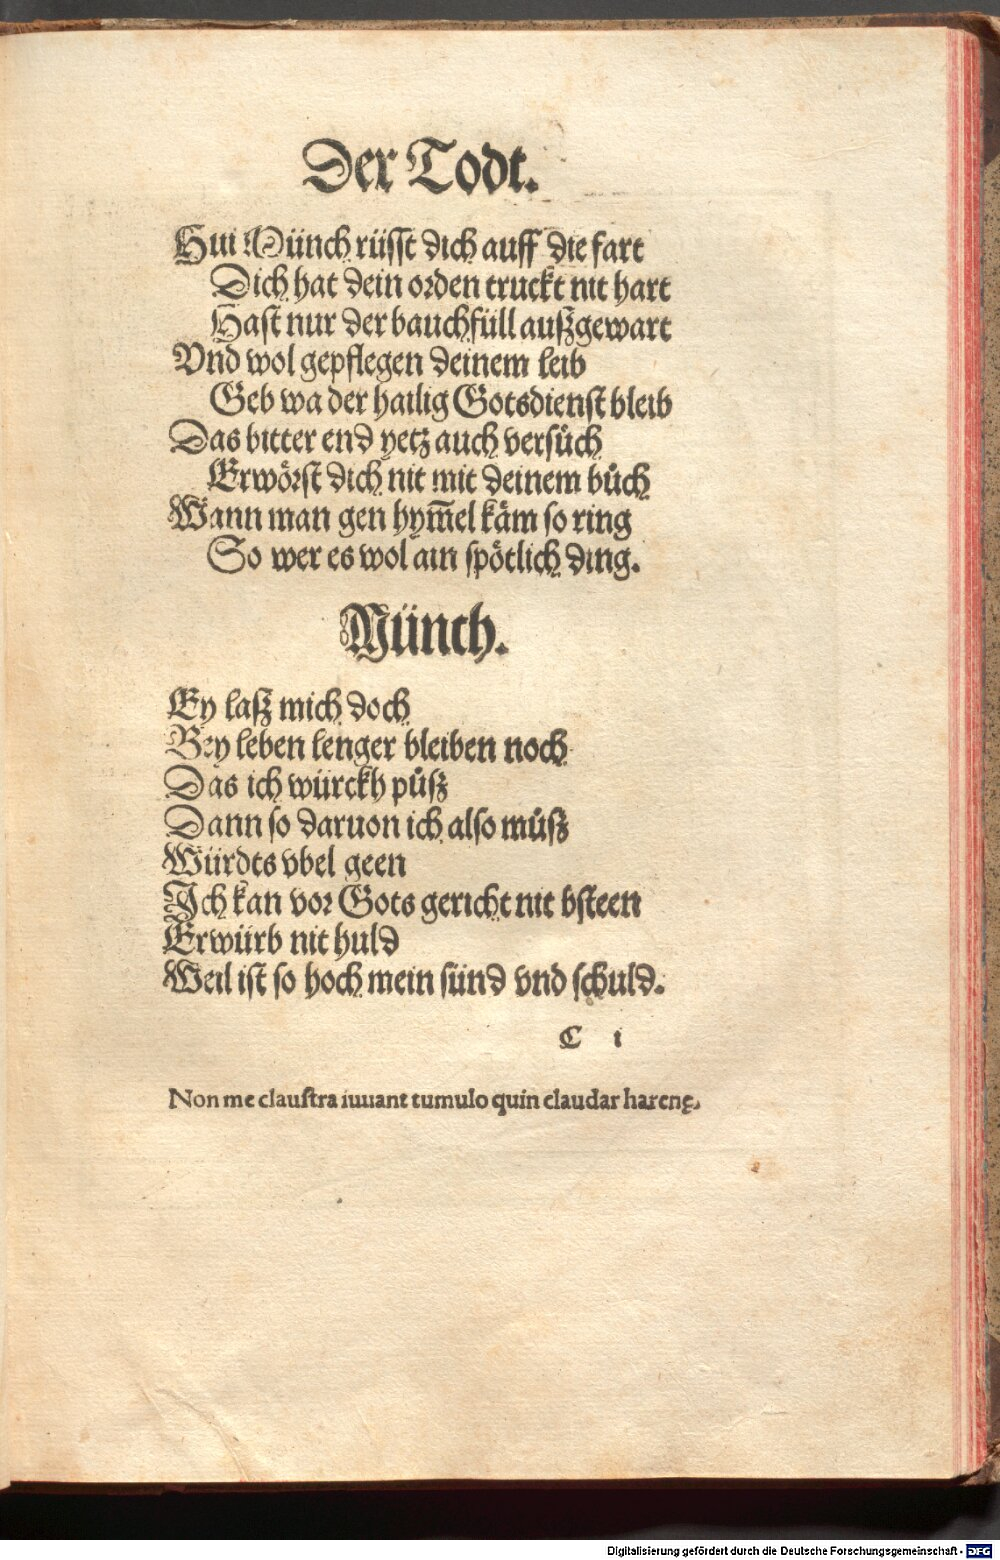 Der Todt.
Hui Münch rüsst dich auff die fart
Dich hat dein orden truckt nit hart
Hast nur der bauchfüll außgewart
Vnd wol gepflegen deinem leib
Geb wa der hailig Gotsdienst bleib
Das bitter end yetz auch versůch
Erwörst dich nit mit deinem bůch
Wann man gen hym̅el käm so ring
So wer es wol ain spötlich ding.
Münch.
Ey laß mich doch
Bey leben lenger bleiben noch
Das ich würckh půß
Dann so daruon ich also můß
Würdts vbel geen
Ich kan vor Gots gericht nit bsteen
Erwürb nit huld
Weil ist so hoch mein sünd vnd schuld.
C i
Non me claustra iuuant tumulo quin claudar harenę.
Digitalisierung gefördert durch die Deutsche Forschungsgemeinschaft - DFG